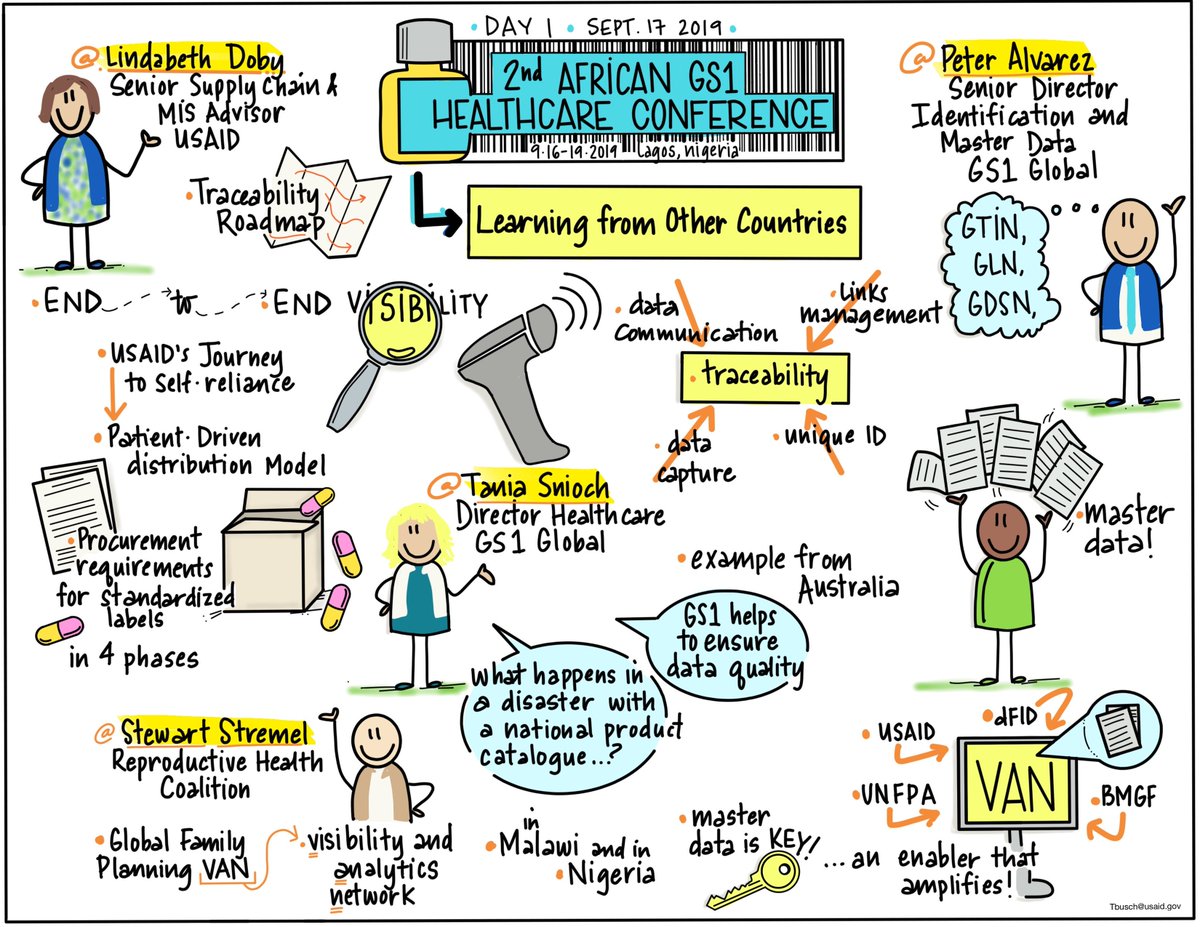 • DAY 1 • SEPT. 17 2019 •
2nd AFRICAN GS1
HEALTHCARE CONFERENCE
9.16-19.2019 Lagos, Nigeria
Learning from Other Countries
@ Lindabeth Doby
Senior Supply Chain &
MIS Advisor
USAID
• Traceability
Roadmap
• END to • END VISIBILITY
• USAID's Journey
to Self-reliance
• Patient-Driven
distribution Model
• Procurement
requirements
for standardized
labels
in 4 phases
@ Peter Alvarez
Senior Director
Identification and
Master Data
GS1 Global
GTIN,
GLN,
GDSN,
• data
communication
• Links
management
• traceability
• data
capture
• unique ID
• master
data!
@ Tania Snioch
Director Healthcare
GS1 Global
• example from
Australia
GS1 helps
to ensure
data quality
What happens in
a disaster with
a national product
catalogue...?
@ Stewart Stremel
Reproductive Health
Coalition
• Global Family
Planning VAN
• visibility and
analytics
network
in
• Malawi and in
• Nigeria
• master
data is KEY!
...an enabler that
amplifies!
• USAID
• dFID
• UNFPA
VAN
• BMGF
Tbusch@usaid.gov